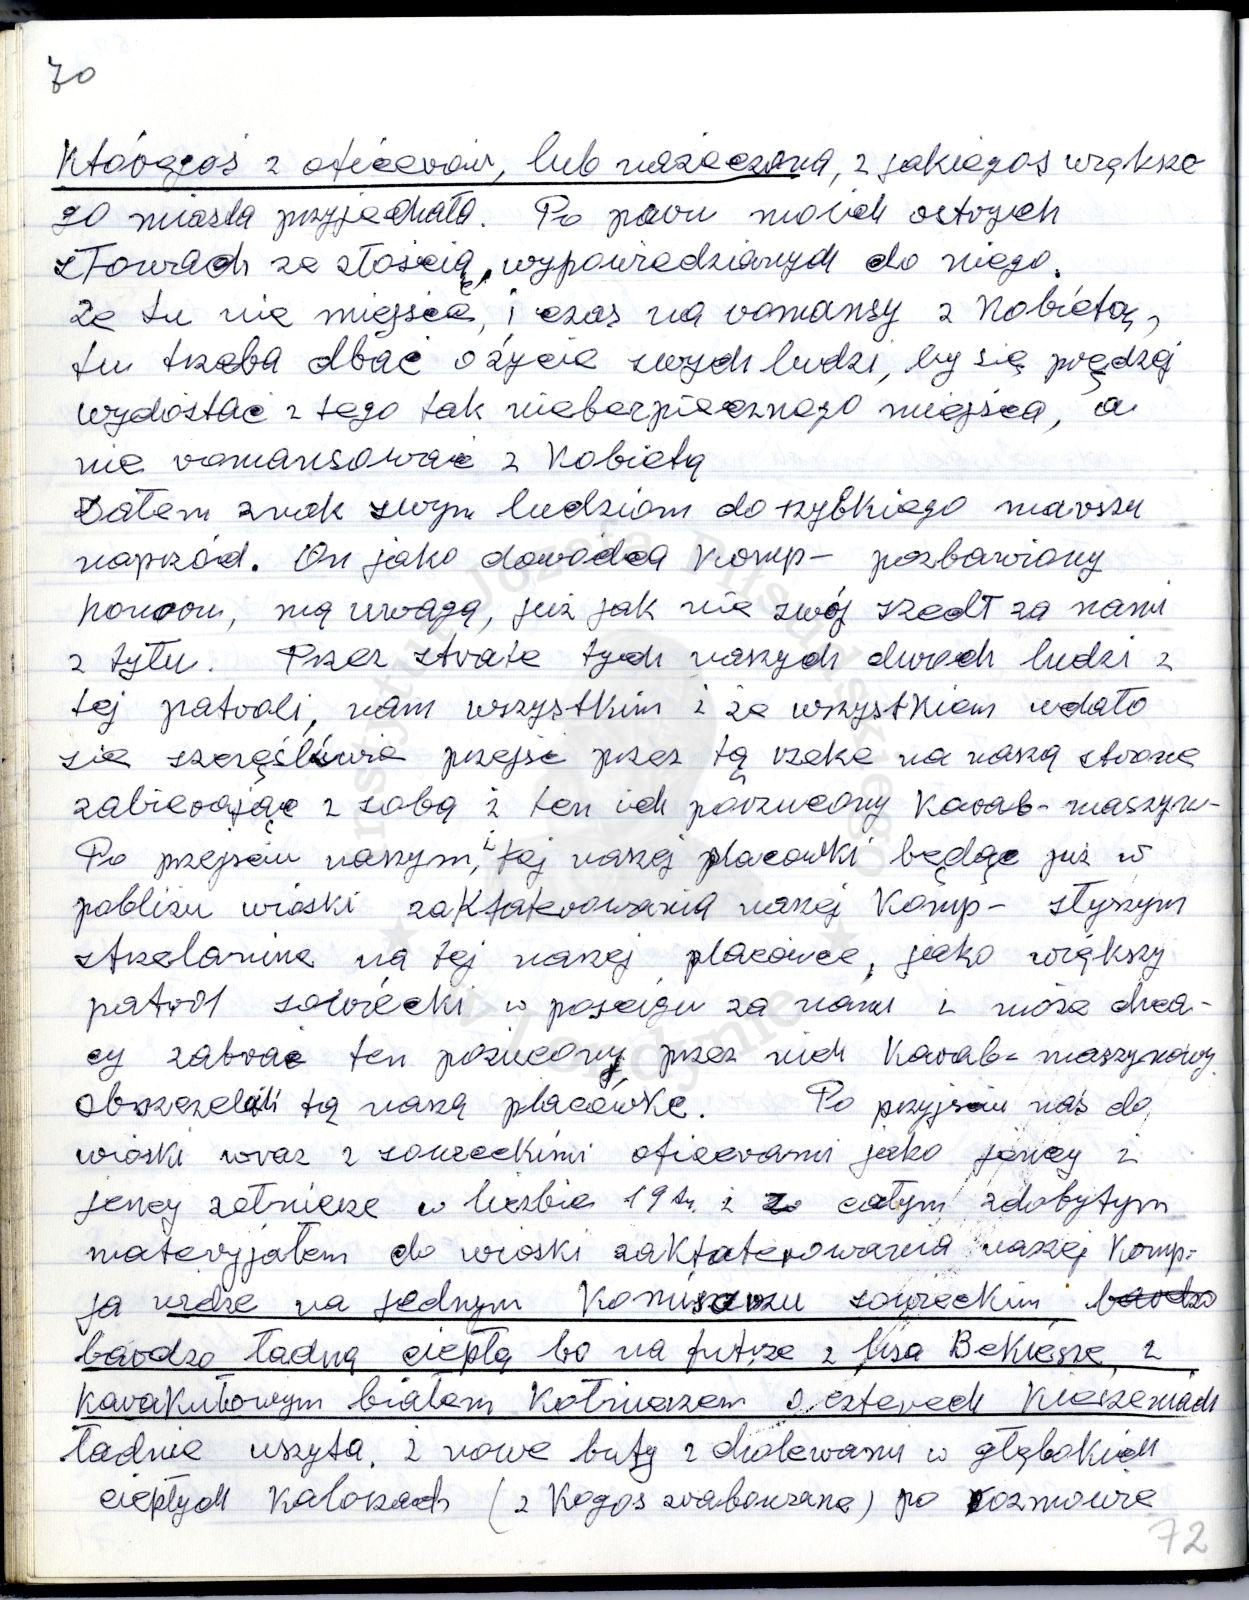 70
Któregoś z oficerów, lub narzeczona, z jakiegoś większe
go miasta przyjechała. Po paru moich ostrych
słowach ze złością, wypowiedzianych do niego.
że tu nie miejsce, i czas na romansy z Kobietą,
tu trzeba dbać o życie swych ludzi, by się prędzej
wydostać z tego tak niebezpiecznego miejsca, a
nie romansować z Kobietą
Dałem znak swym ludziom do szybkiego marszu
naprzód. On jako dowódca Komp- pozbawiony
honoru, mą uwagą, już jak nie swój szedł za nami
z tyłu. Przez strate tych naszych dwoch ludzi z
tej patroli, nam wszystkim i ze wszystkiem udało
sie szczęśliwie przejść przez tą rzeke na naszą strone
zabierając z sobą i ten ich porzucony Karab- maszyn-
Po przejściu naszym, i tej naszej placowki będąc już w
pobliżu wioski zakfaterowania naszej Komp- słyszym
strzelanine na tej naszej placówce, jako większy
patrol sowiecki w poscigu za nami i może chcą-
cy zabrać ten pozucony przez nich Karab- maszynowy
obszczelali tą naszą placówke. Po przyjsciu nas do
wioski wraz z sowieckimi oficerami jako jeńcy i
jeńcy żołnierze w liczbie 19tu i z całym zdobytym
materyjałem do wioski zakfaterowania naszej Komp-
ja widze na jednym Komisarzu sowieckim bardzo
bardzo ładną ciepłą bo na futrze z lisa Bekiesze z
Karakułowym białem Kołnieszem o czterech Kieszeniach
ładnie uszyta, i nowe buty z cholewami w głębokich
ciepłych Kaloszach (z Kogos zrabowane) po rozmowie
72
Instytut Józefa Piłsudskiego
w Londynie